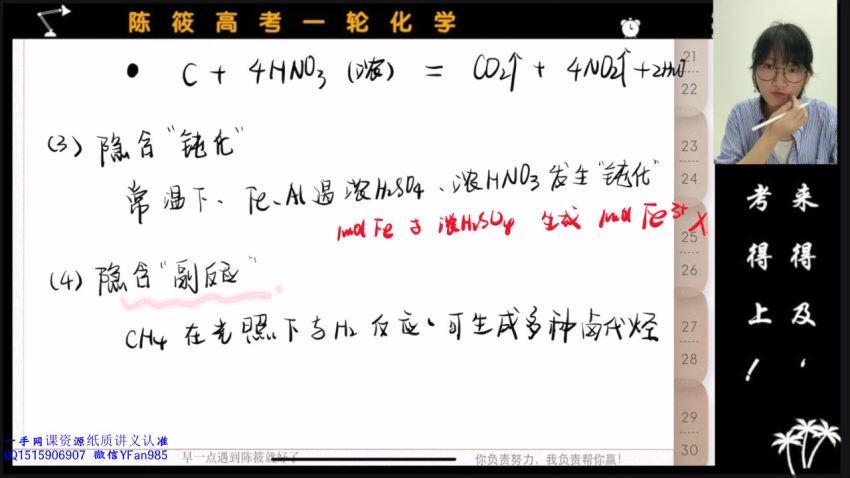 陈筱高考一轮化学
• C + 4HNO₃ (浓) = CO₂↑ + 4NO₂↑ + 2H₂O
(3) 隐含"钝化"
常温下、Fe、Al遇浓H₂SO₄、浓HNO₃发生"钝化"
1mol Fe 与 浓H₂SO₄ 生成 1mol Fe³⁺ ×
(4) 隐含"副反应"
CH₄在光照下与H₂反应、可生成多种卤代烃
21
22
23
24
25
26
27
28
29
30
来得及，
考得上！
一手网课资源纸质讲义认准
QQ1515906907 微信YFan985
早一点遇到陈筱就好了
你负责努力，我负责帮你赢！